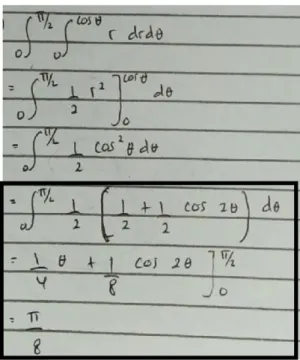 ∫₀^{π/2} ∫₀^{cosθ} r drdθ
= ∫₀^{π/2} 1/2 r² ]₀^{cosθ} dθ
= ∫₀^{π/2} 1/2 cos²θ dθ
= ∫₀^{π/2} 1/2 [1/2 + 1/2 cos 2θ) dθ
= 1/4 θ + 1/8 cos 2θ ]₀^{π/2}
= π/8